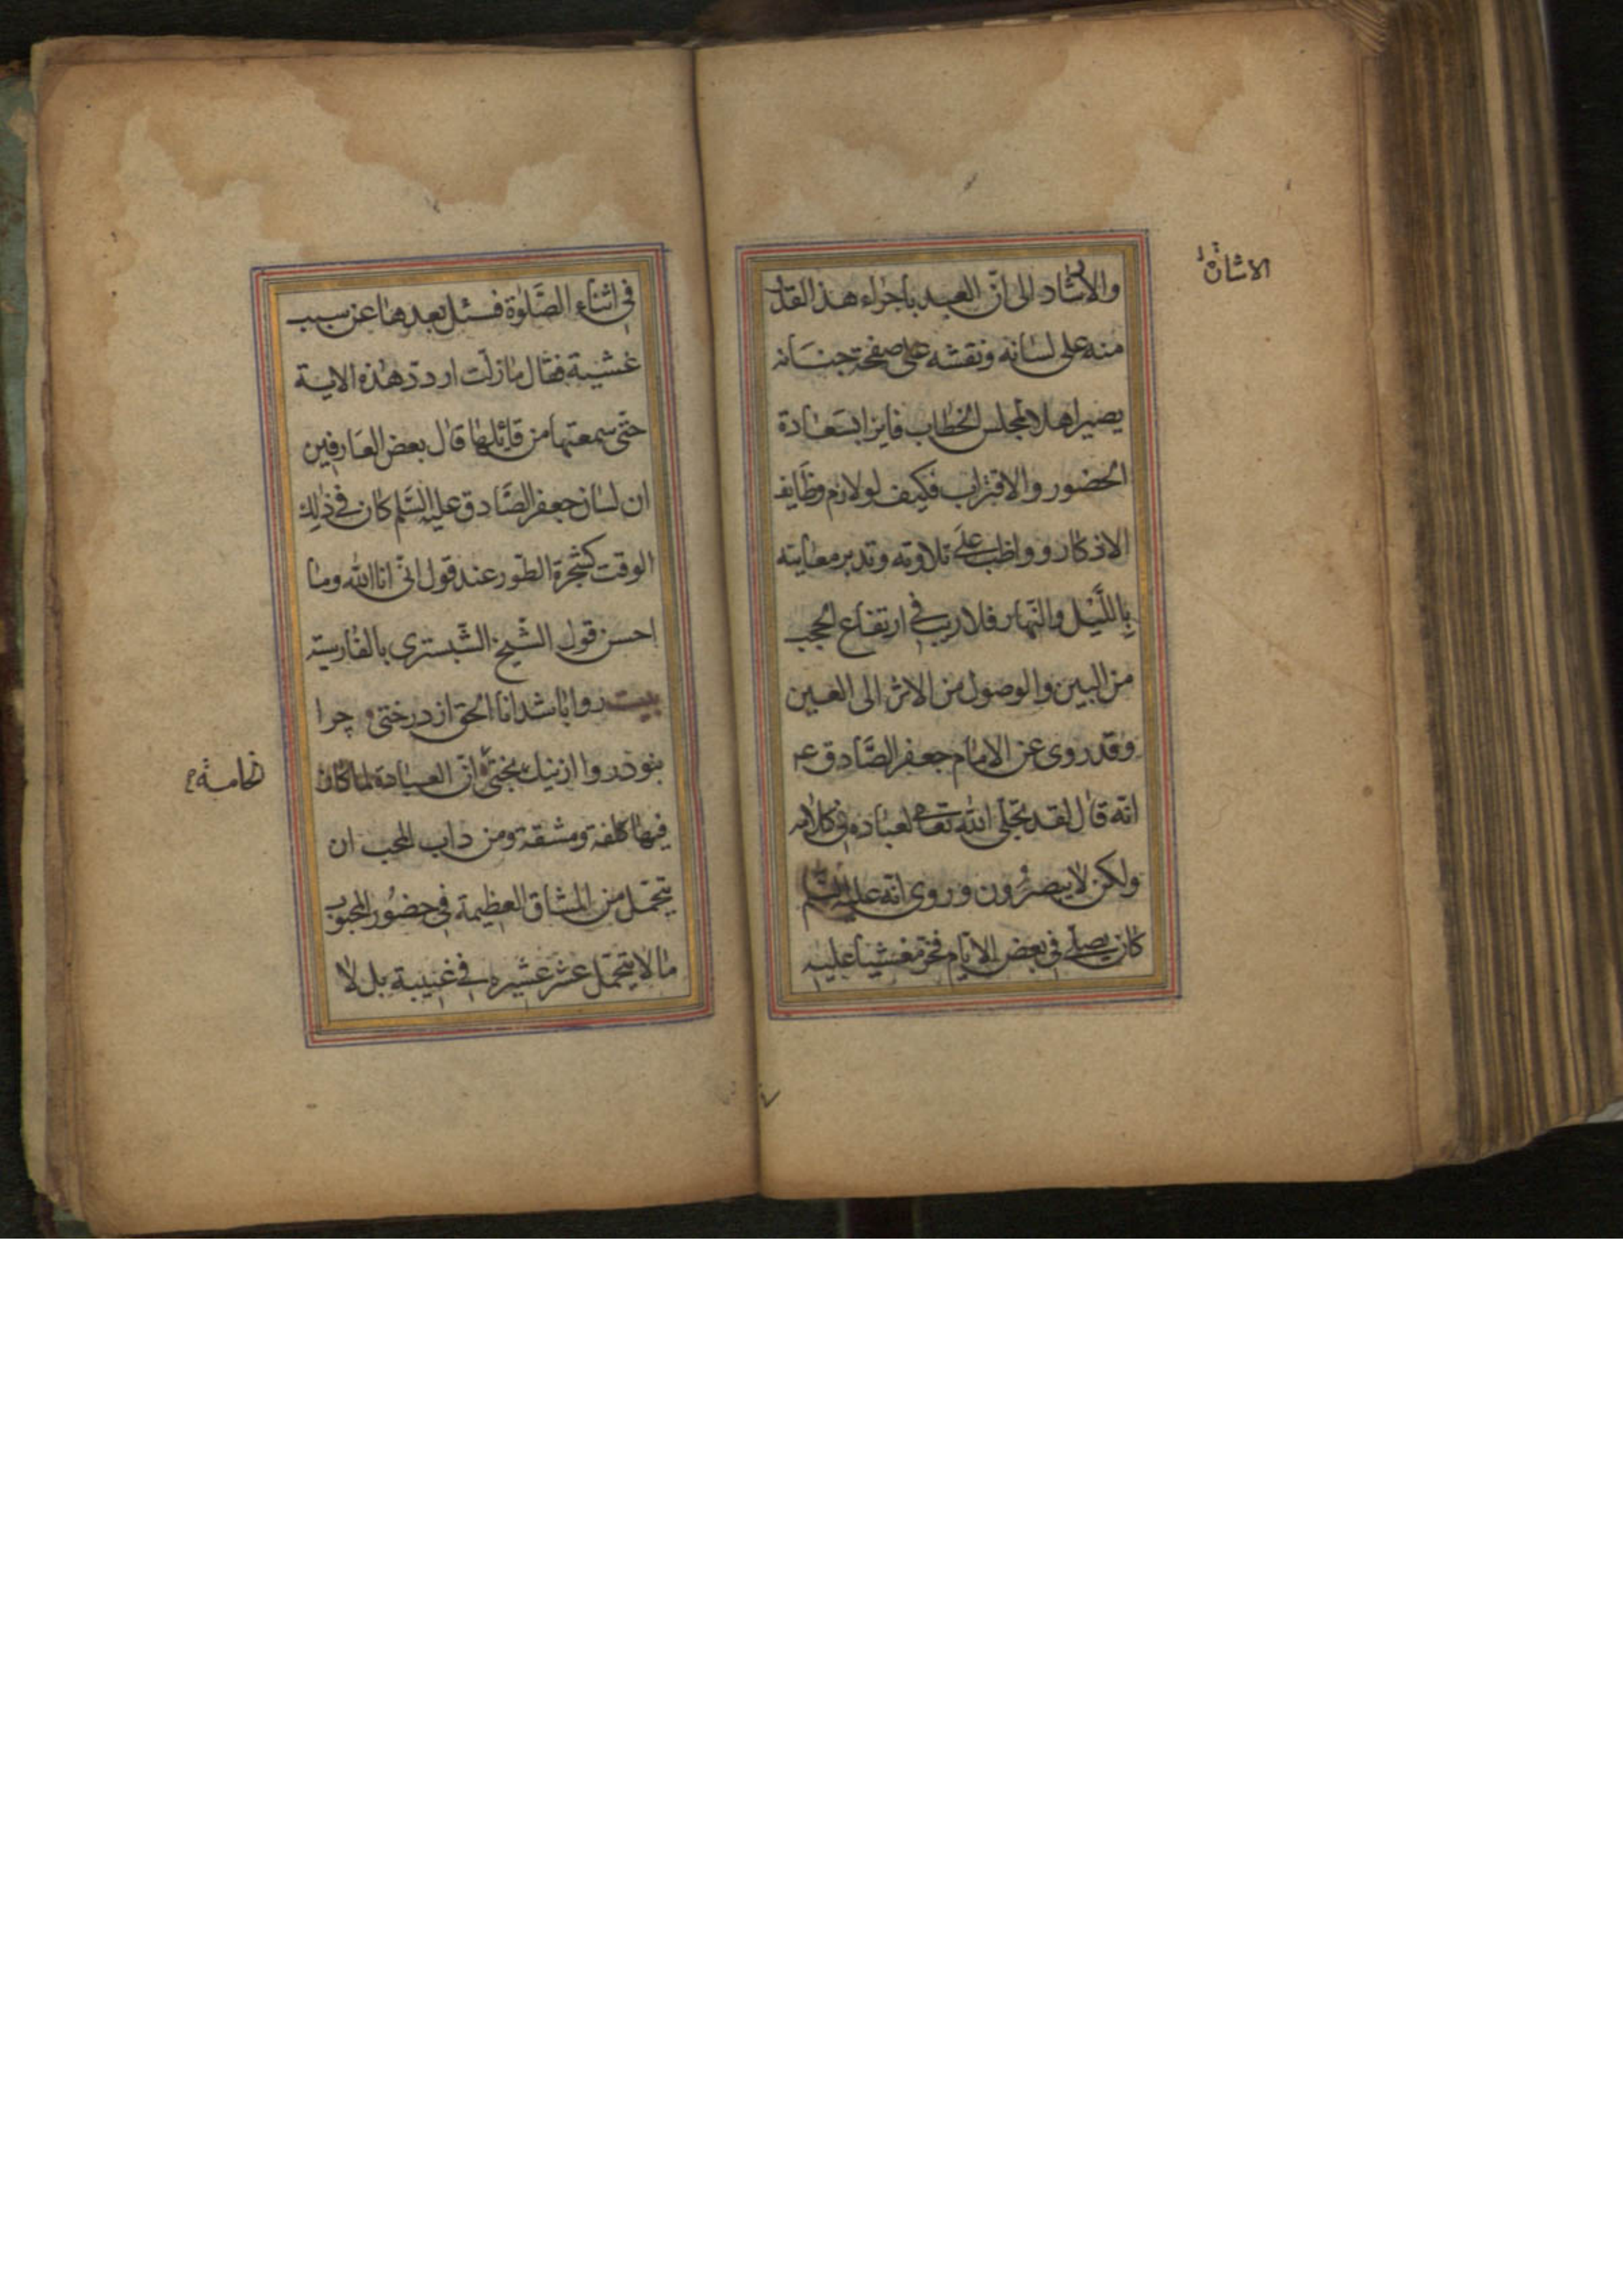 والارشاد الى انّ العبد باجراء هذ القدر
منه على لسانه ونقشه على صفحة جنانه
يصير اهلا لمجلس الخطاب فايزا بسعادة
الحضور والاقتراب فكيف لو لازم وظايف
الاذكار وواظب على تلاوته وتدبر معانيه
بالليل والنهار فلا ريب في ارتفاع الحجب
من البين والوصول من الاثر الى العين
وقد روى عن الامام جعفر الصادق ع
انه قال لقد تجلى الله تعالى لعباده في كلامه
ولكن لا يبصرون وروى انه عليه السلم
كان يصلي في بعض الايام فخر مغشيا عليه
الاشارة
في اثناء الصلوة فسئل بعدها عن سبب
غشيته فقال ما زلت اردد هذه الاية
حتى سمعتها من قائلها قال بعض العارفين
ان لسان جعفر الصادق عليه السلم كان في ذلك
الوقت كشجرة الطور عند قول اني انا الله وما
احسن قول الشيخ الشبستري بالفارسية
بيت روا باشد انا الحق از درختى چرا
بنود روا از نيك بختى انّ العبادة لما كان
فيها كلفة ومشقة ومن داب المحب ان
يتحمل من المشاق العظيمة في حضور المحبوب
ما لا يتحمل عشر عشيره في غيبته بل لا